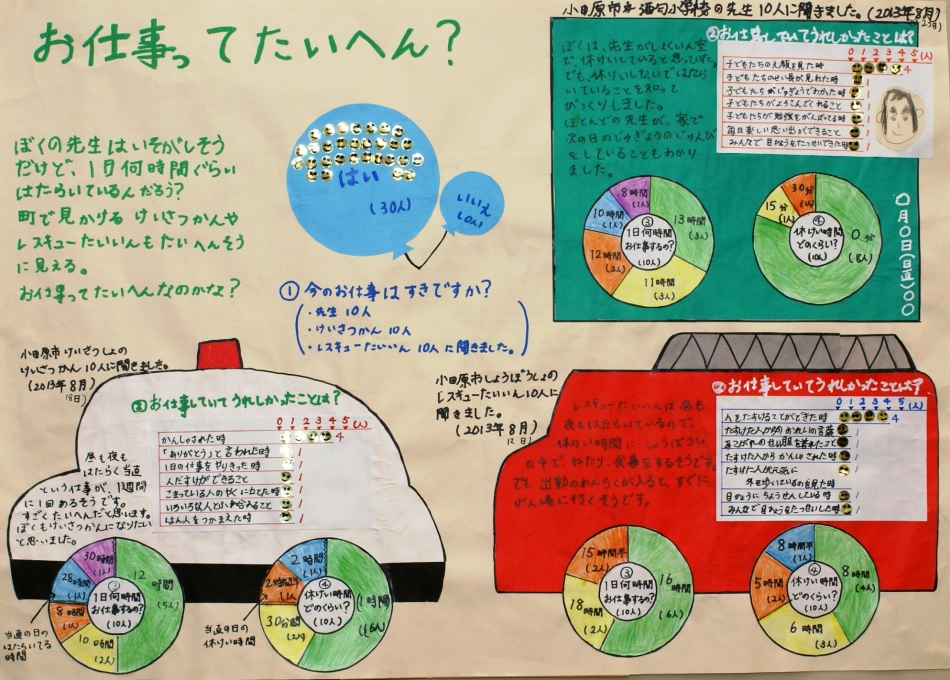 お仕事ってたいへん？
ぼくの先生はいそがしそう
だけど、1日何時間ぐらい
はたらいているんだろう？
町で見かけるけいさつかんや
レスキューたいいんもたいへんそう
に見える。
お仕事ってたいへんなのかな？
はい
(30人)
いいえ
(0人)
①今のお仕事はすきですか？
・先生 10人
・けいさつかん 10人
・レスキューたいいん 10人に聞きました。
小田原市立酒匂小学校の先生10人に聞きました。(2013年8月)
ぼくは、先生がしょくいん室
で、休けいしていると思っていた。
でも、休けいしないではたら
いていることを知って
びっくりしました。
ほとんどの先生が、家で
次の日のじゅぎょうのじゅんび
をしていることもわかり
ました。
②お仕事していてうれしかったことは？
0 1 2 3 4 5 (人)
子どもたちのえ顔を見た時 4
子どもたちのせい長が見れた時 1
子どもたちがじゅぎょうでわかった時
子どもたちがよろこんでくれること
子どもたちが勉強をがんばってる時
毎日楽しい思い出ができること
みんなで目ひょうをたっせいできた時
8時間
(1人)
10時間
(1人)
12時間
(2人)
11時間
(3人)
13時間
(3人)
③
1日何時間
お仕事するの？
(10人)
30分
(1人)
15分
(1人)
0分
(8人)
④
休けい時間
どのくらい？
(10人)
〇月〇日(日直)〇〇
小田原市けいさつしょの
けいさつかん10人に聞きました。
(2013年8月)
②お仕事していてうれしかったことは？
0 1 2 3 4 5 (人)
かんしゃされた時 4
「ありがとう」と言われた時 1
1日の仕事をやりきった時 1
人だすけができること 1
こまっている人のやくに立てた時 1
いろいろな人とふれ合えること 1
はん人をつかまえた時 1
昼も夜も
はたらく当直
という仕事が、1週間
に1回あるそうです。
すごくたいへんだと思います。
ぼくもけいさつかんになりたい
と思いました。
30時間
(1人)
28時間
(1人)
8時間
(1人)
10時間
(2人)
12時間
(5人)
③
1日何時間
お仕事するの？
(10人)
当直の日の
はたらいてる
時間
2時間
(1人)
2時間半
(1人)
30分間
(2人)
1時間
(6人)
④
休けい時間
どのくらい？
(10人)
当直の日の
休けい時間
小田原市しょうぼうしょの
レスキューたいいん10人に
聞きました。
(2013年8月)
12日
レスキューたいいんは昼も
夜もはたらいているので、
休けい時間に、しょうぼうしょ
の中で、ねたり、食事をするそうです。
でも出動のれんらくが入ると、すぐに
げん場に行くそうです。
②お仕事していてうれしかったことは？
0 1 2 3 4 5 (人)
人をたすけることができた時 4
たすけた人からのおれいの言葉 1
あこがれのせい服を着れたこと 1
たすけた人からかんしゃされた時 1
たすけた人が元気に
外を歩いているのを見た時 1
目ひょうにちょうせんしている時 1
みんなで目ひょうをたっせいした時 1
15時間半
(2人)
18時間
(2人)
16時間
(6人)
③
1日何時間
お仕事するの？
(10人)
8時間半
(1人)
5時間
(2人)
6時間
(3人)
8時間
(4人)
④
休けい時間
どのくらい？
(10人)